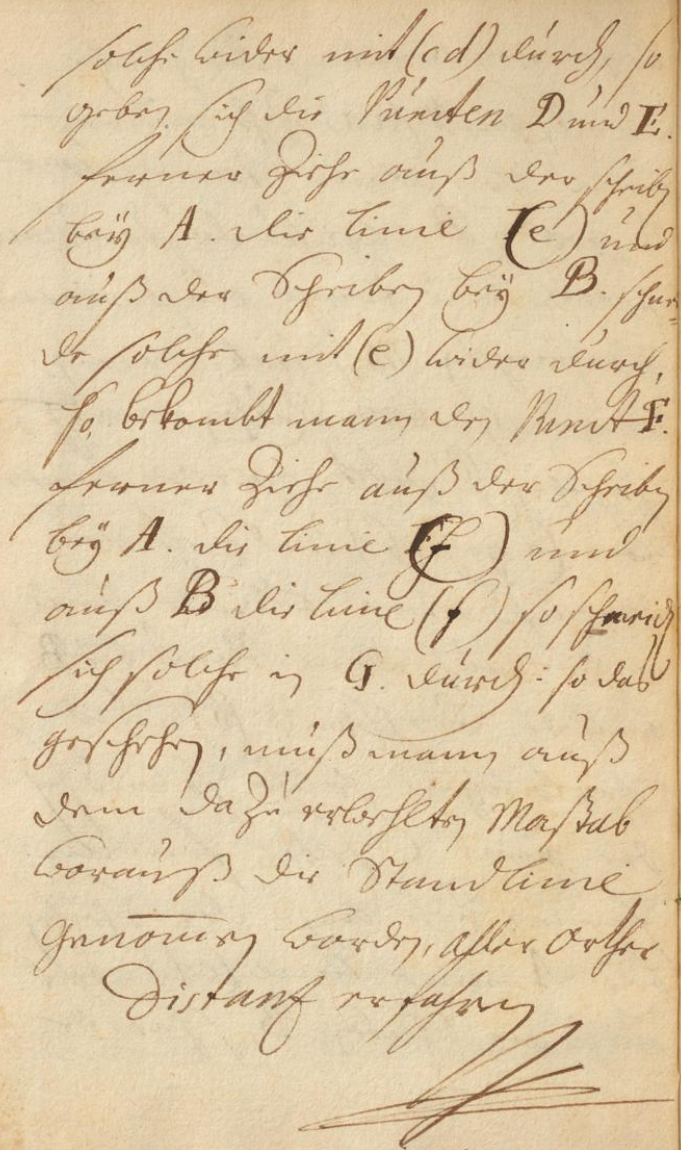 solche wider mit (cd) durch, so
geben sich die Puncten D und E.
ferner Ziehe auß der scheiben
beÿ A. die Linie (e) und
auß der Scheiben beÿ B. schnei=
de solche mit (e) wider durch,
so bekombt mann den Punct F.
ferner Ziehe auß der Scheiben
beÿ A. die Linie (f) und
auß B die Linie (f) so schneid
sich solche in G. durch: so das
geschehen, muß mann auß
dem daZu erwehlten Maßtab
worauß die Standlinie
genom̄en worden, aller Orther
Distantz erfahren